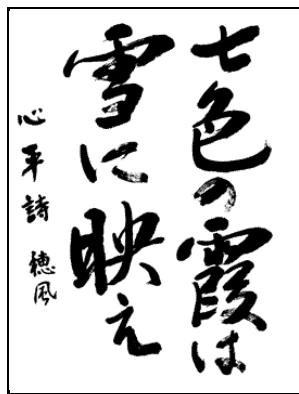 七色の霞は
雪に映え
心平詩 穂風